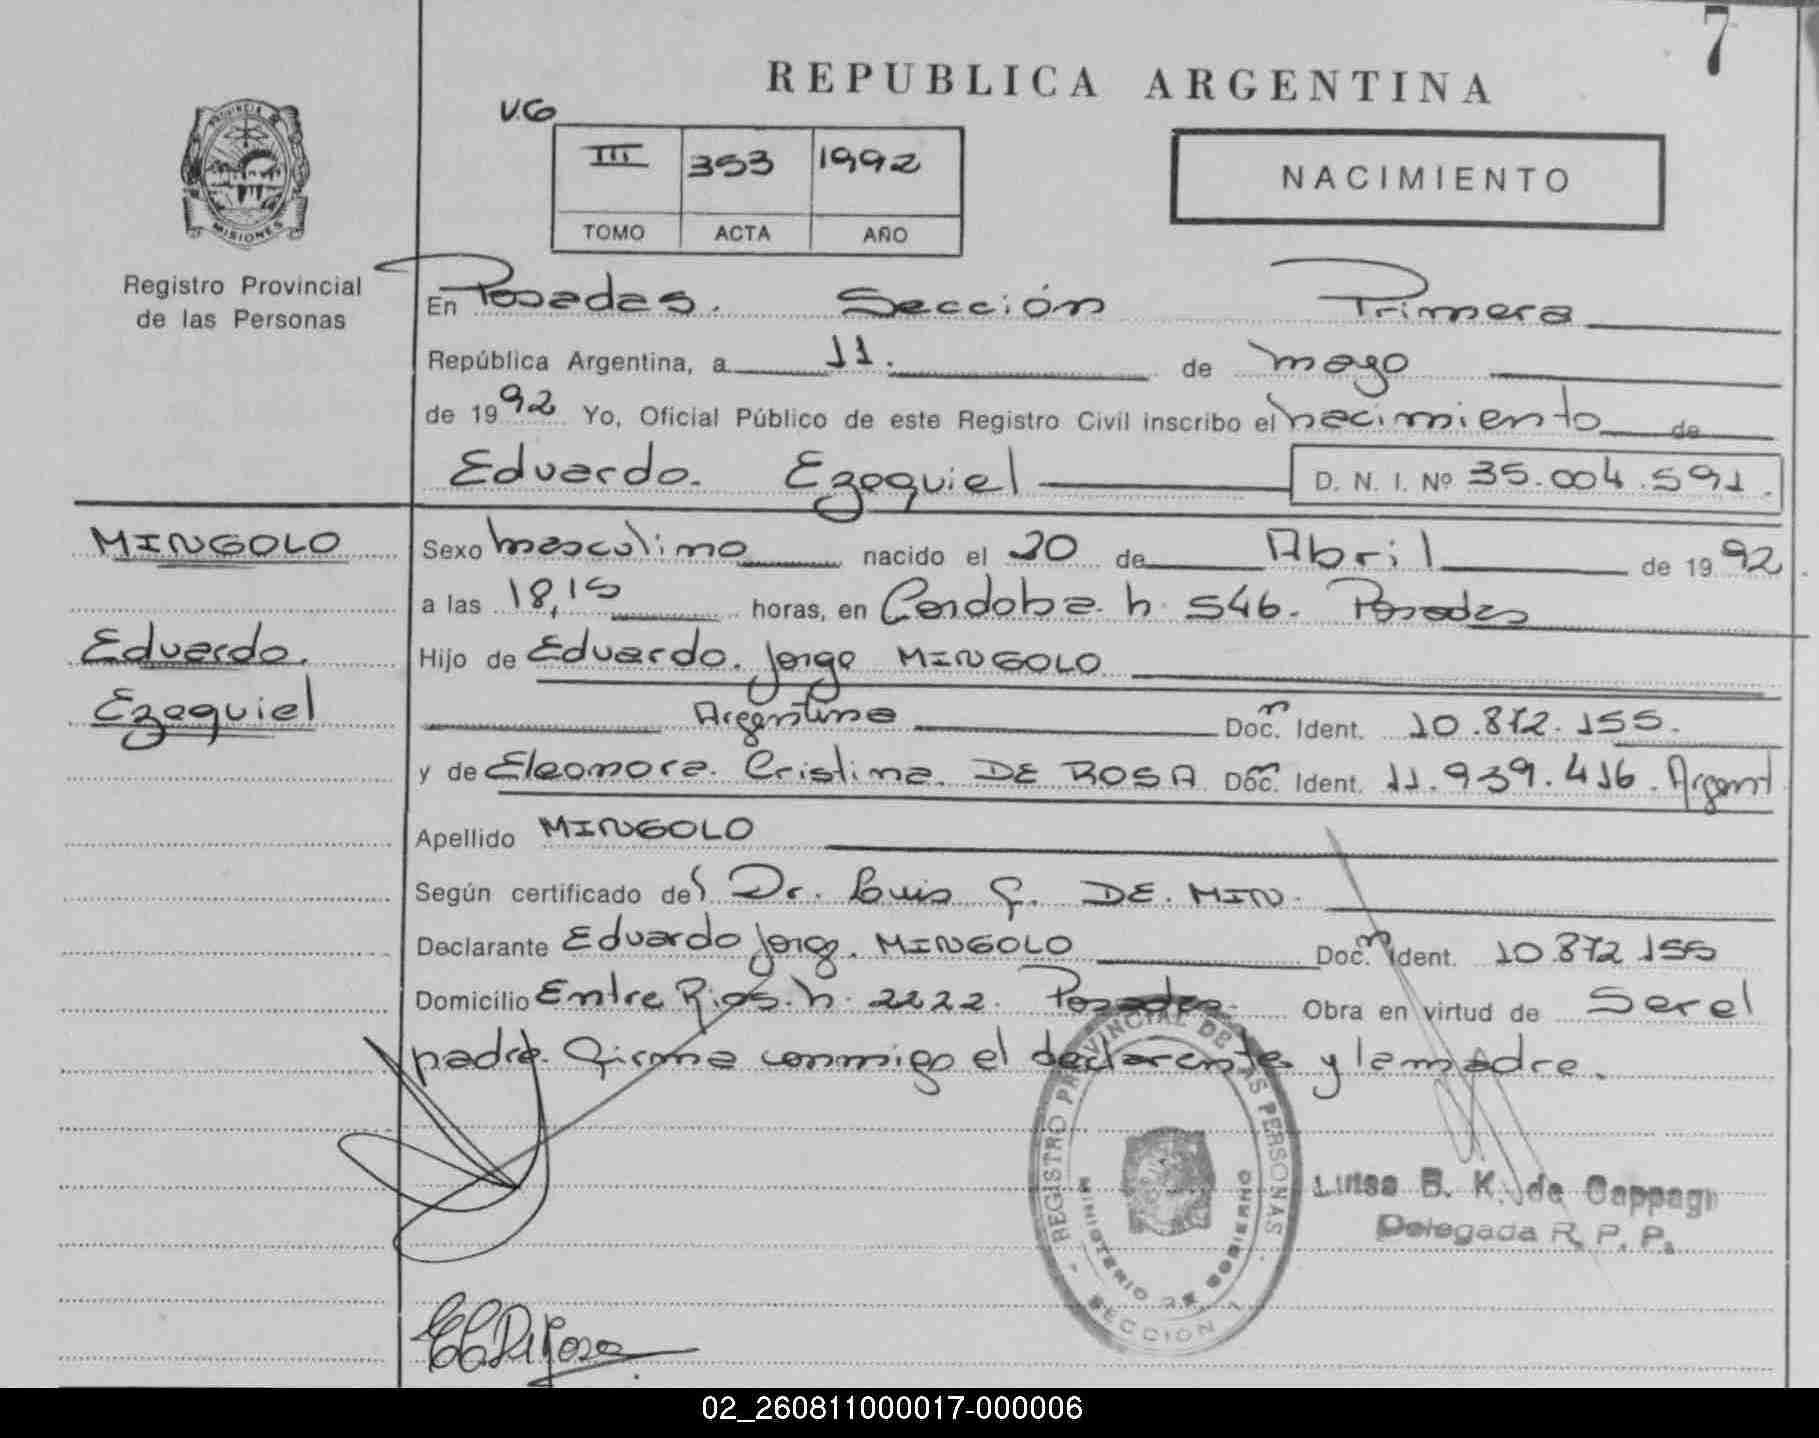 7
REPUBLICA ARGENTINA
V.G
III 353 1992
TOMO ACTA AÑO
NACIMIENTO
PROVINCIA DE
MISIONES
Registro Provincial
de las Personas
En Posadas. Sección Primera
República Argentina, a 11. de mayo
de 1992 Yo, Oficial Público de este Registro Civil inscribo el nacimiento de
Eduardo. Ezequiel D. N. I. Nº 35.004.591.
MINGOLO
Eduardo.
Ezequiel
Sexo masculino nacido el 20 de Abril de 1992
a las 18,15 horas, en Cordoba. n. 546. Posadas
Hijo de Eduardo. Jorge MINGOLO
Argentino Doc. n Ident. 10.872.155.
y de Eleonora. Cristina. DE ROSA Doc. n Ident. 11.939.416. Argent
Apellido MINGOLO
Según certificado del Dr. Luis G. DE. MIN.
Declarante Eduardo Jorge. MINGOLO Doc. n Ident. 10.872.155
Domicilio Entre Rios. n. 2222. Posadas. Obra en virtud de Ser el
padre. Firma conmigo el declarante y la madre.
REGISTRO PROVINCIAL DE LAS PERSONAS
MINISTERIO DE GOBIERNO
SECCION 1
Luisa B. K. de Cappagi
Delegada R. P. P.
02_260811000017-000006